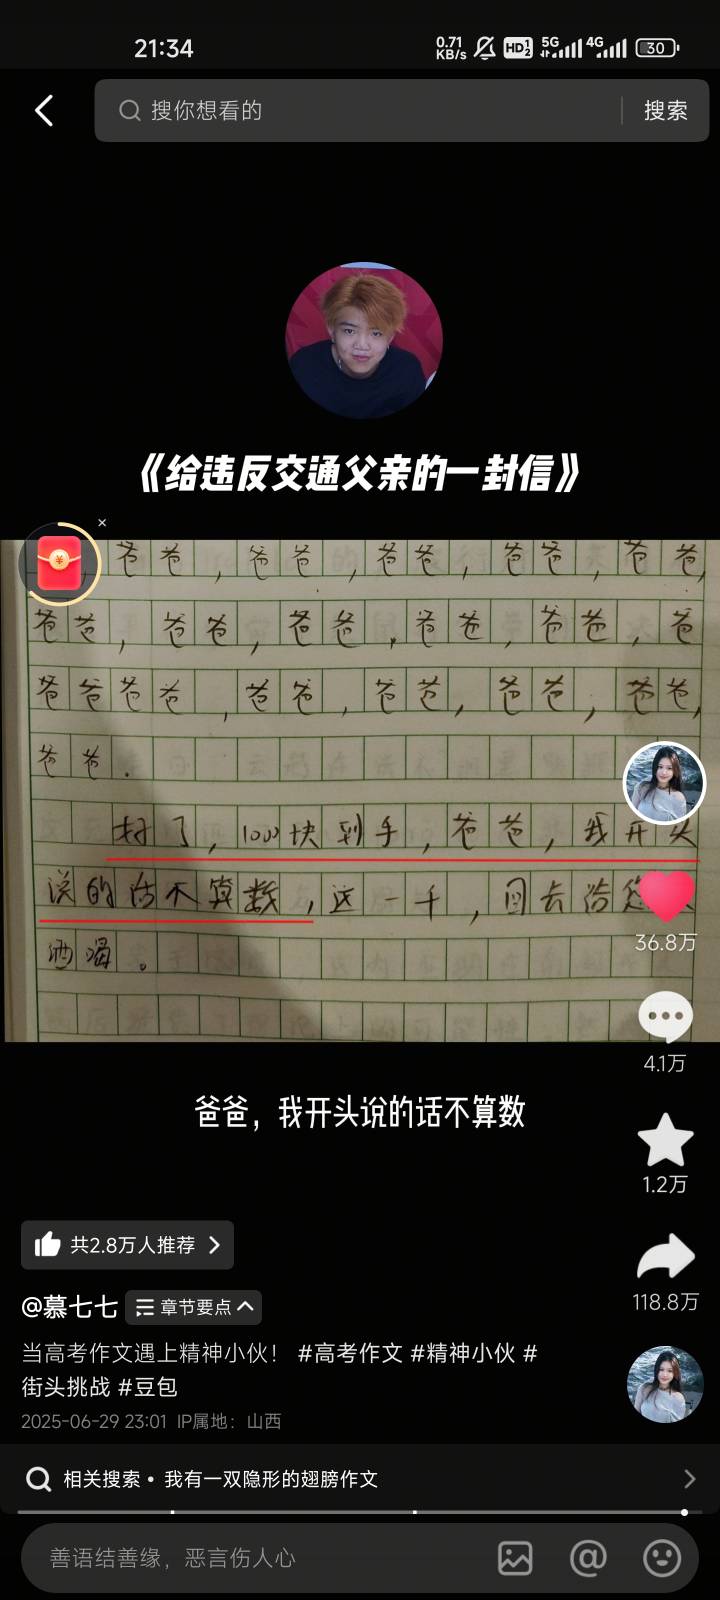 21:34
0.71 KB/s HD 1 2 5G 4G 30
搜你想看的 搜索
《给违反交通父亲的一封信》
爸爸,爸爸,爸爸,爸爸,爸爸,
爸爸,爸爸,爸爸,爸爸,爸爸,爸
爸爸爸爸,爸爸,爸爸,爸爸,爸爸,
爸爸.
好了,1000块到手,爸爸,我开头
说的话不算数,这一千,回去给您
酒喝。
36.8万
4.1万
爸爸，我开头说的话不算数
1.2万
共2.8万人推荐
118.8万
@慕七七 章节要点
当高考作文遇上精神小伙！ #高考作文 #精神小伙 #
街头挑战 #豆包
2025-06-29 23:01 IP属地：山西
相关搜索 • 我有一双隐形的翅膀作文
善语结善缘，恶言伤人心